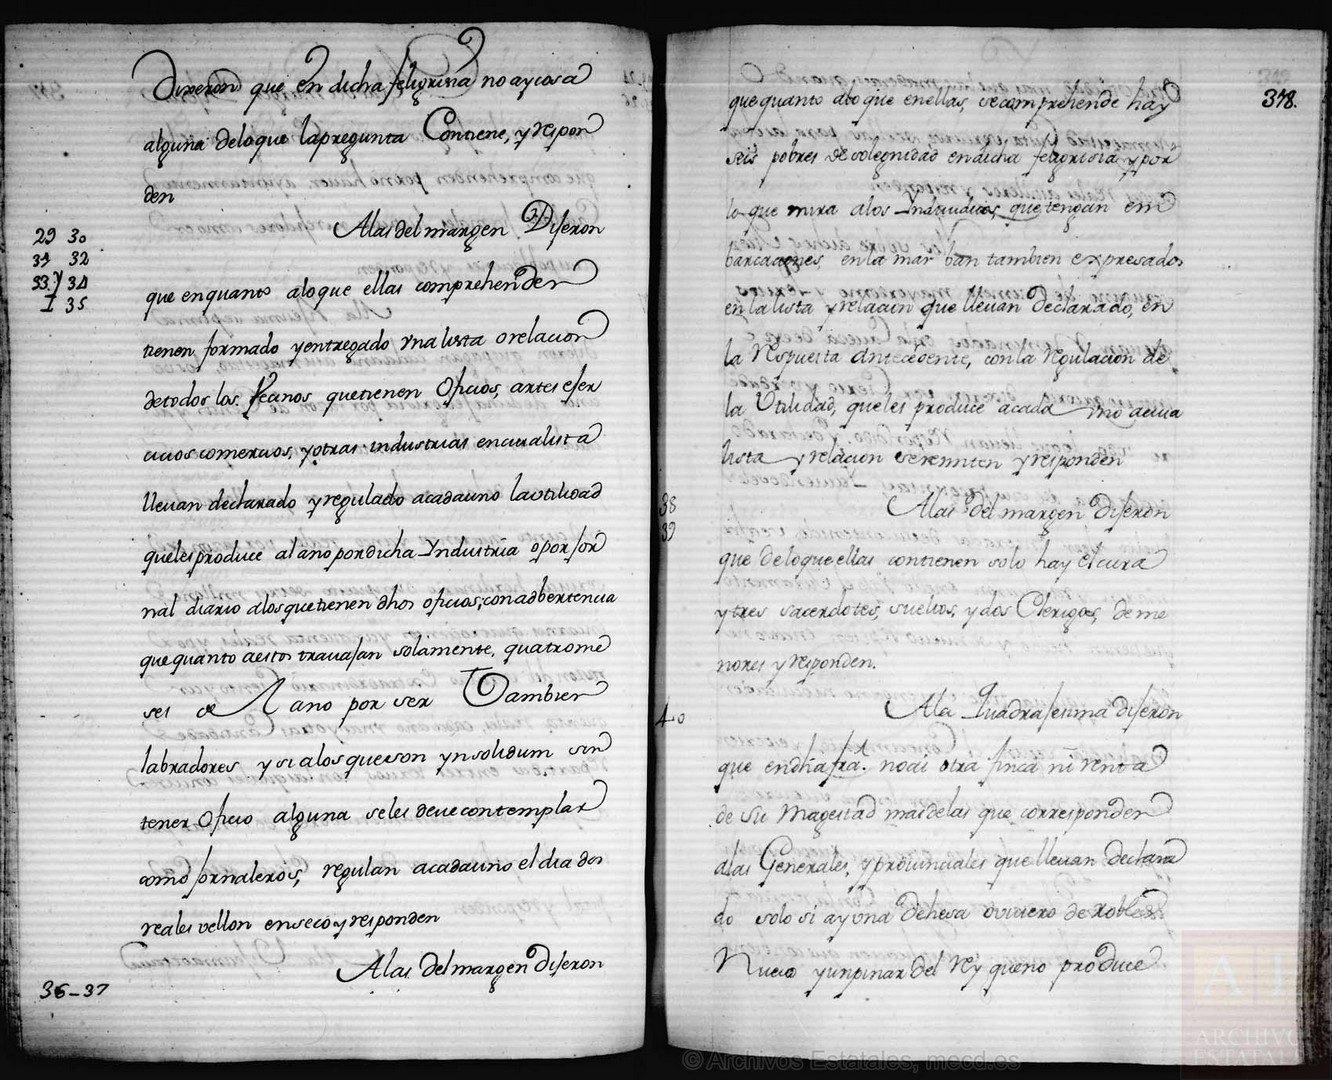 Dixeron que en dicha feligrisia no ay cosa
alguna delo que lapregunta Contiene, y respon
den
Alas del margen Dijeron
29 30
31 32
33 y 34
I 35
que enquanto aloque ellas comprehenden
tienen formado yentregado vna lista o relacion
detodos los Vecinos quetienen Oficios, artes ejer
cicios comercios, yotras industrias encuia lista
lleuan declarado y regulado acadauno la vtilidad
queles produce al ano por dicha Yndustria o por jor
nal diario alos quetienen dhos oficios; con adbertencia
que quanto aestos travajan solamente, quatro me
ses de A ano por ser Tambien
labradores y si alos queson ynsolidum sin
tener Oficio alguna seles deve contemplar
como jornaleros, regulan acadauno el dia dos
reales vellon en seco y responden
Alas del margen dijeron
36-37
378.
que quanto alo que en ellas, se comprehende hay
seis pobres de solegnidad en dicha feligrisia y por
lo que mira alos Yndividuos, que tengan em
barcaciones, en la mar ban tambien expresados
en la lista y relacion que lleuan declarado, en
la respuesta antecedente, con la regulacion de
la Utilidad, queles produce acada vno acuia
lista y relacion se remiten y responden
38
39
Alas del margen dijeron
que delo que ellas contienen solo hay el cura
y tres sacerdotes, sueltos, y dos Clerigos, de me
nores y responden.
40
Ala Quadrajesima dijeron
que en dha fra. no ai otra finca ni renta
de Su Magestad mas delas que corresponden
alas Generales, y provinciales que lleuan declara
do solo si ay vna dehesa o vivero de robles
Nuevo y un pinar del Rey que no produce
© Archivos Estatales, mecd.es
ARCHIVOS
ESTATALES